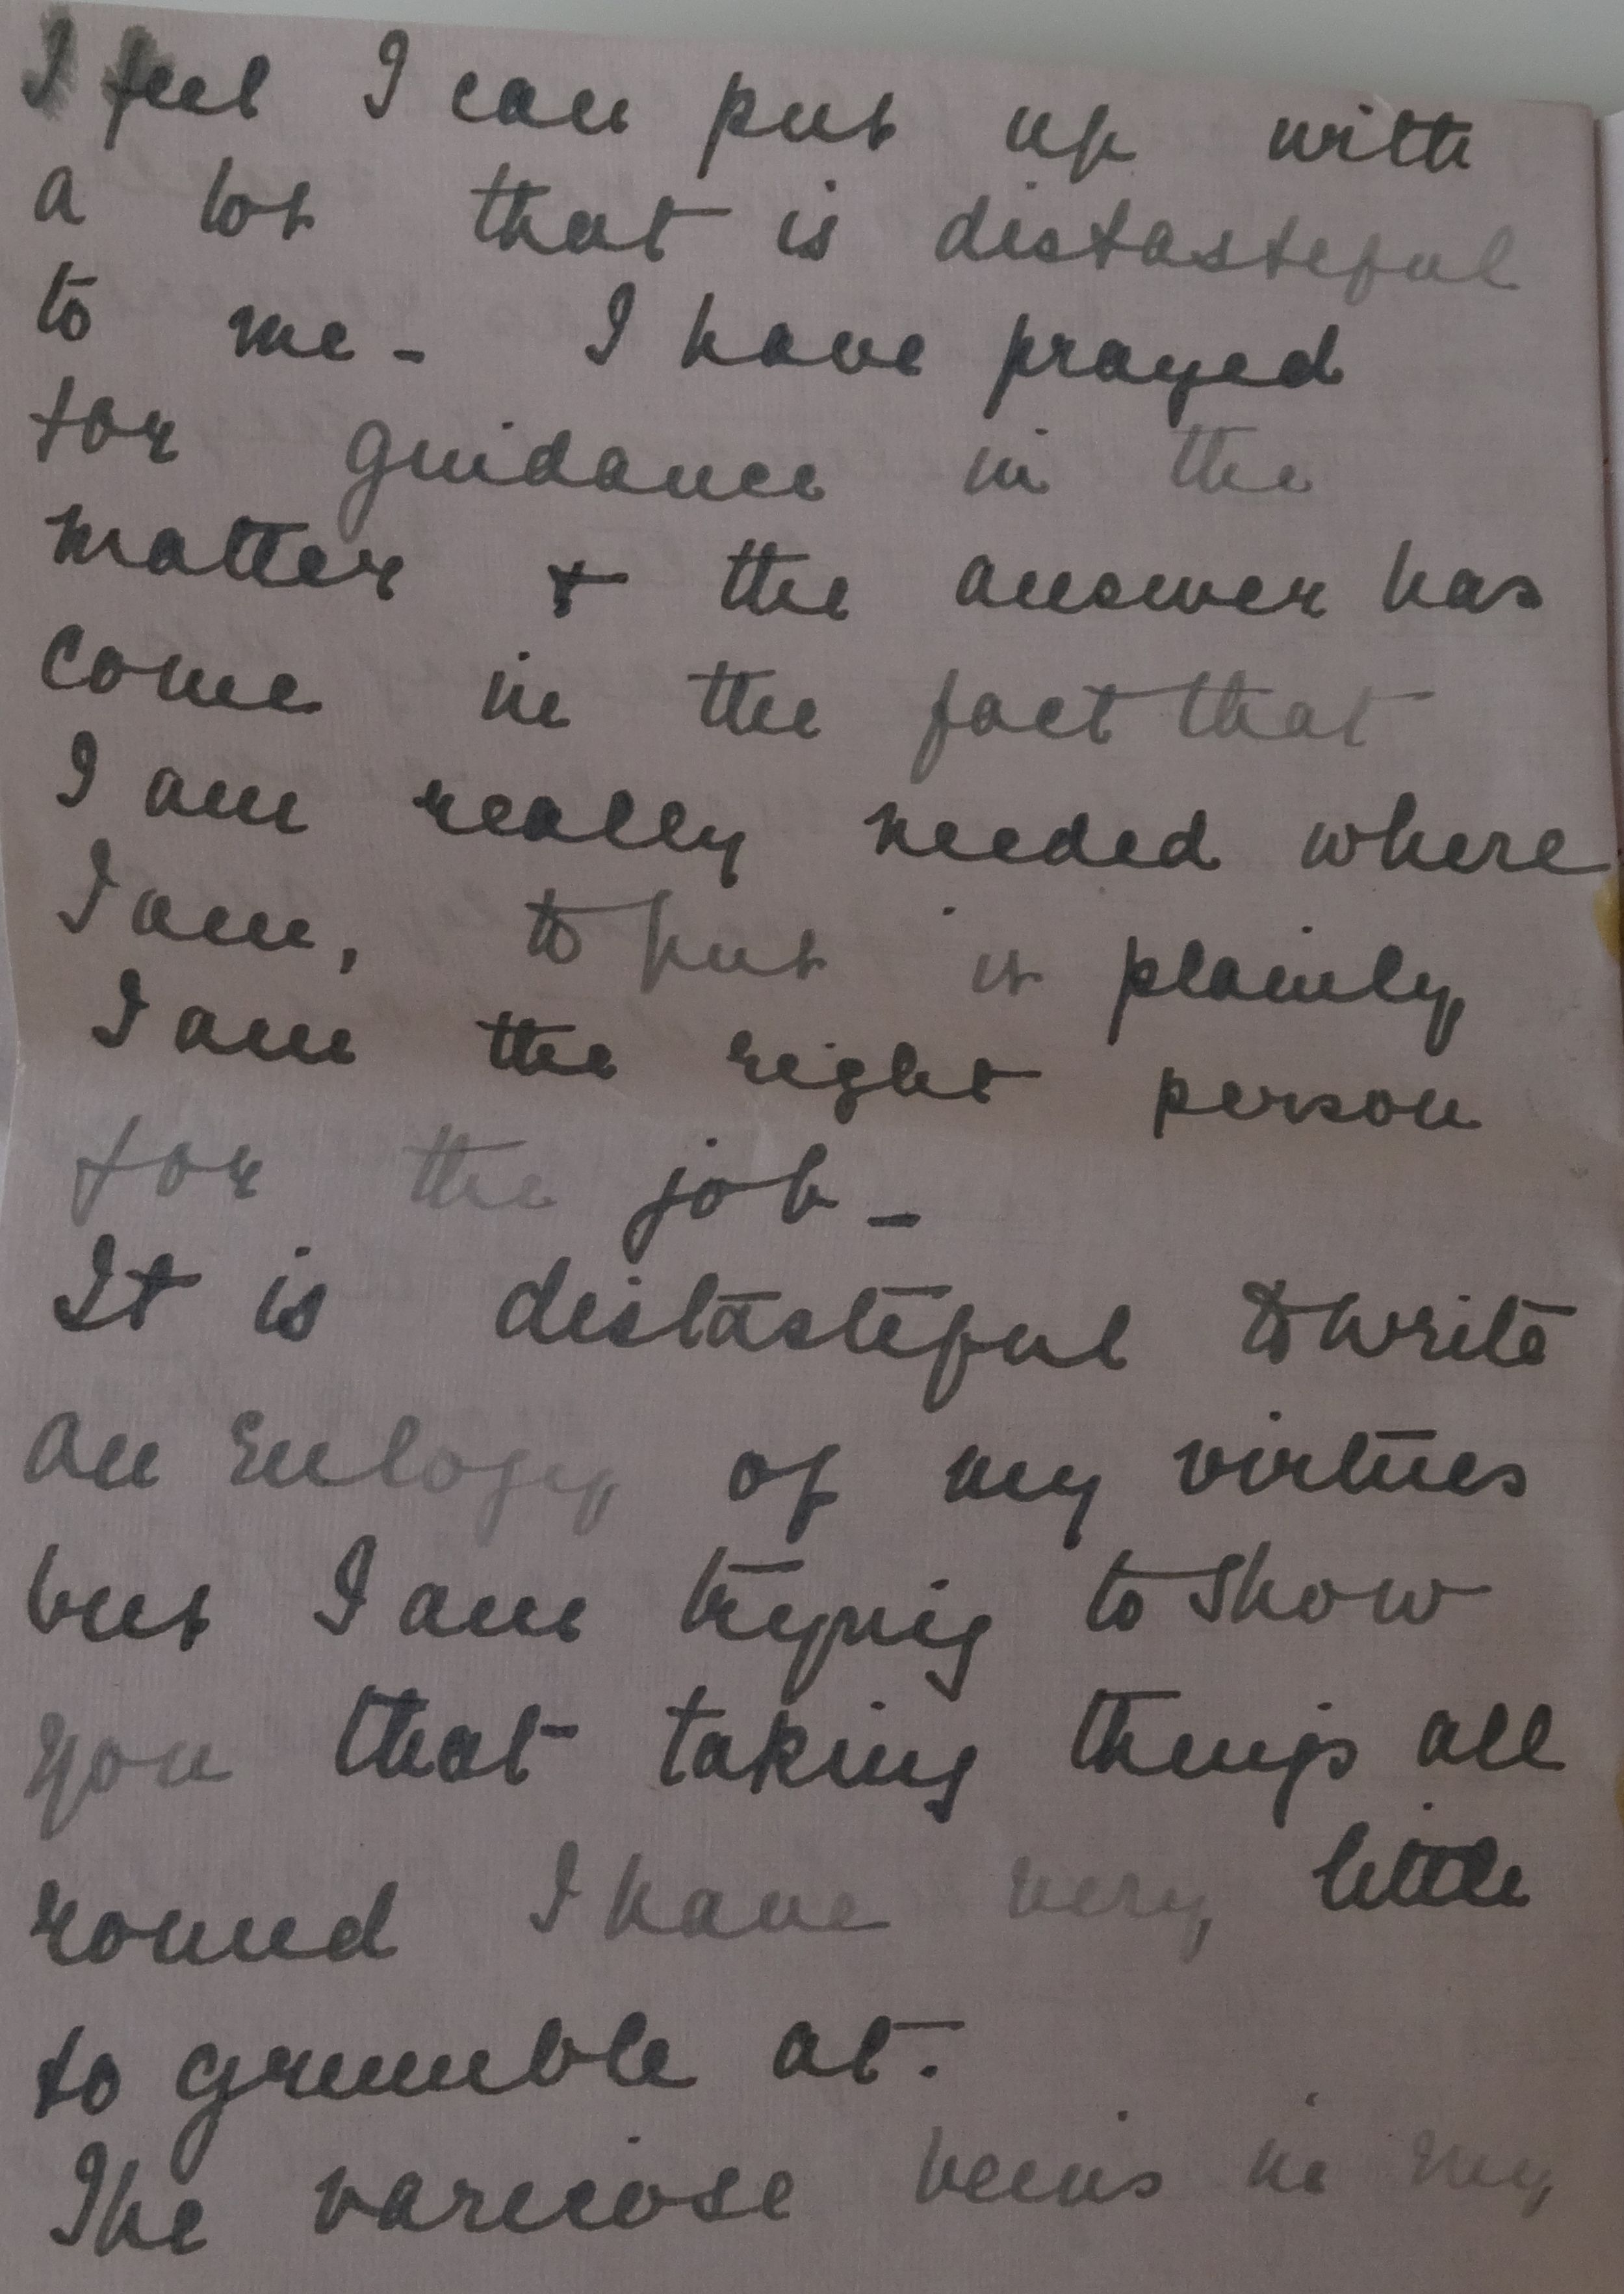 I feel I can put up with
a lot that is distasteful
to me - I have prayed
for guidance in the
matter & the answer has
come in the fact that
I am really needed where
I am, to put it plainly,
I am the right person
for the job -
It is distasteful to write
an Eulogy of my virtues
but I am trying to show
you that taking things all
round I have very little
to grumble at.
The varicose veins in my